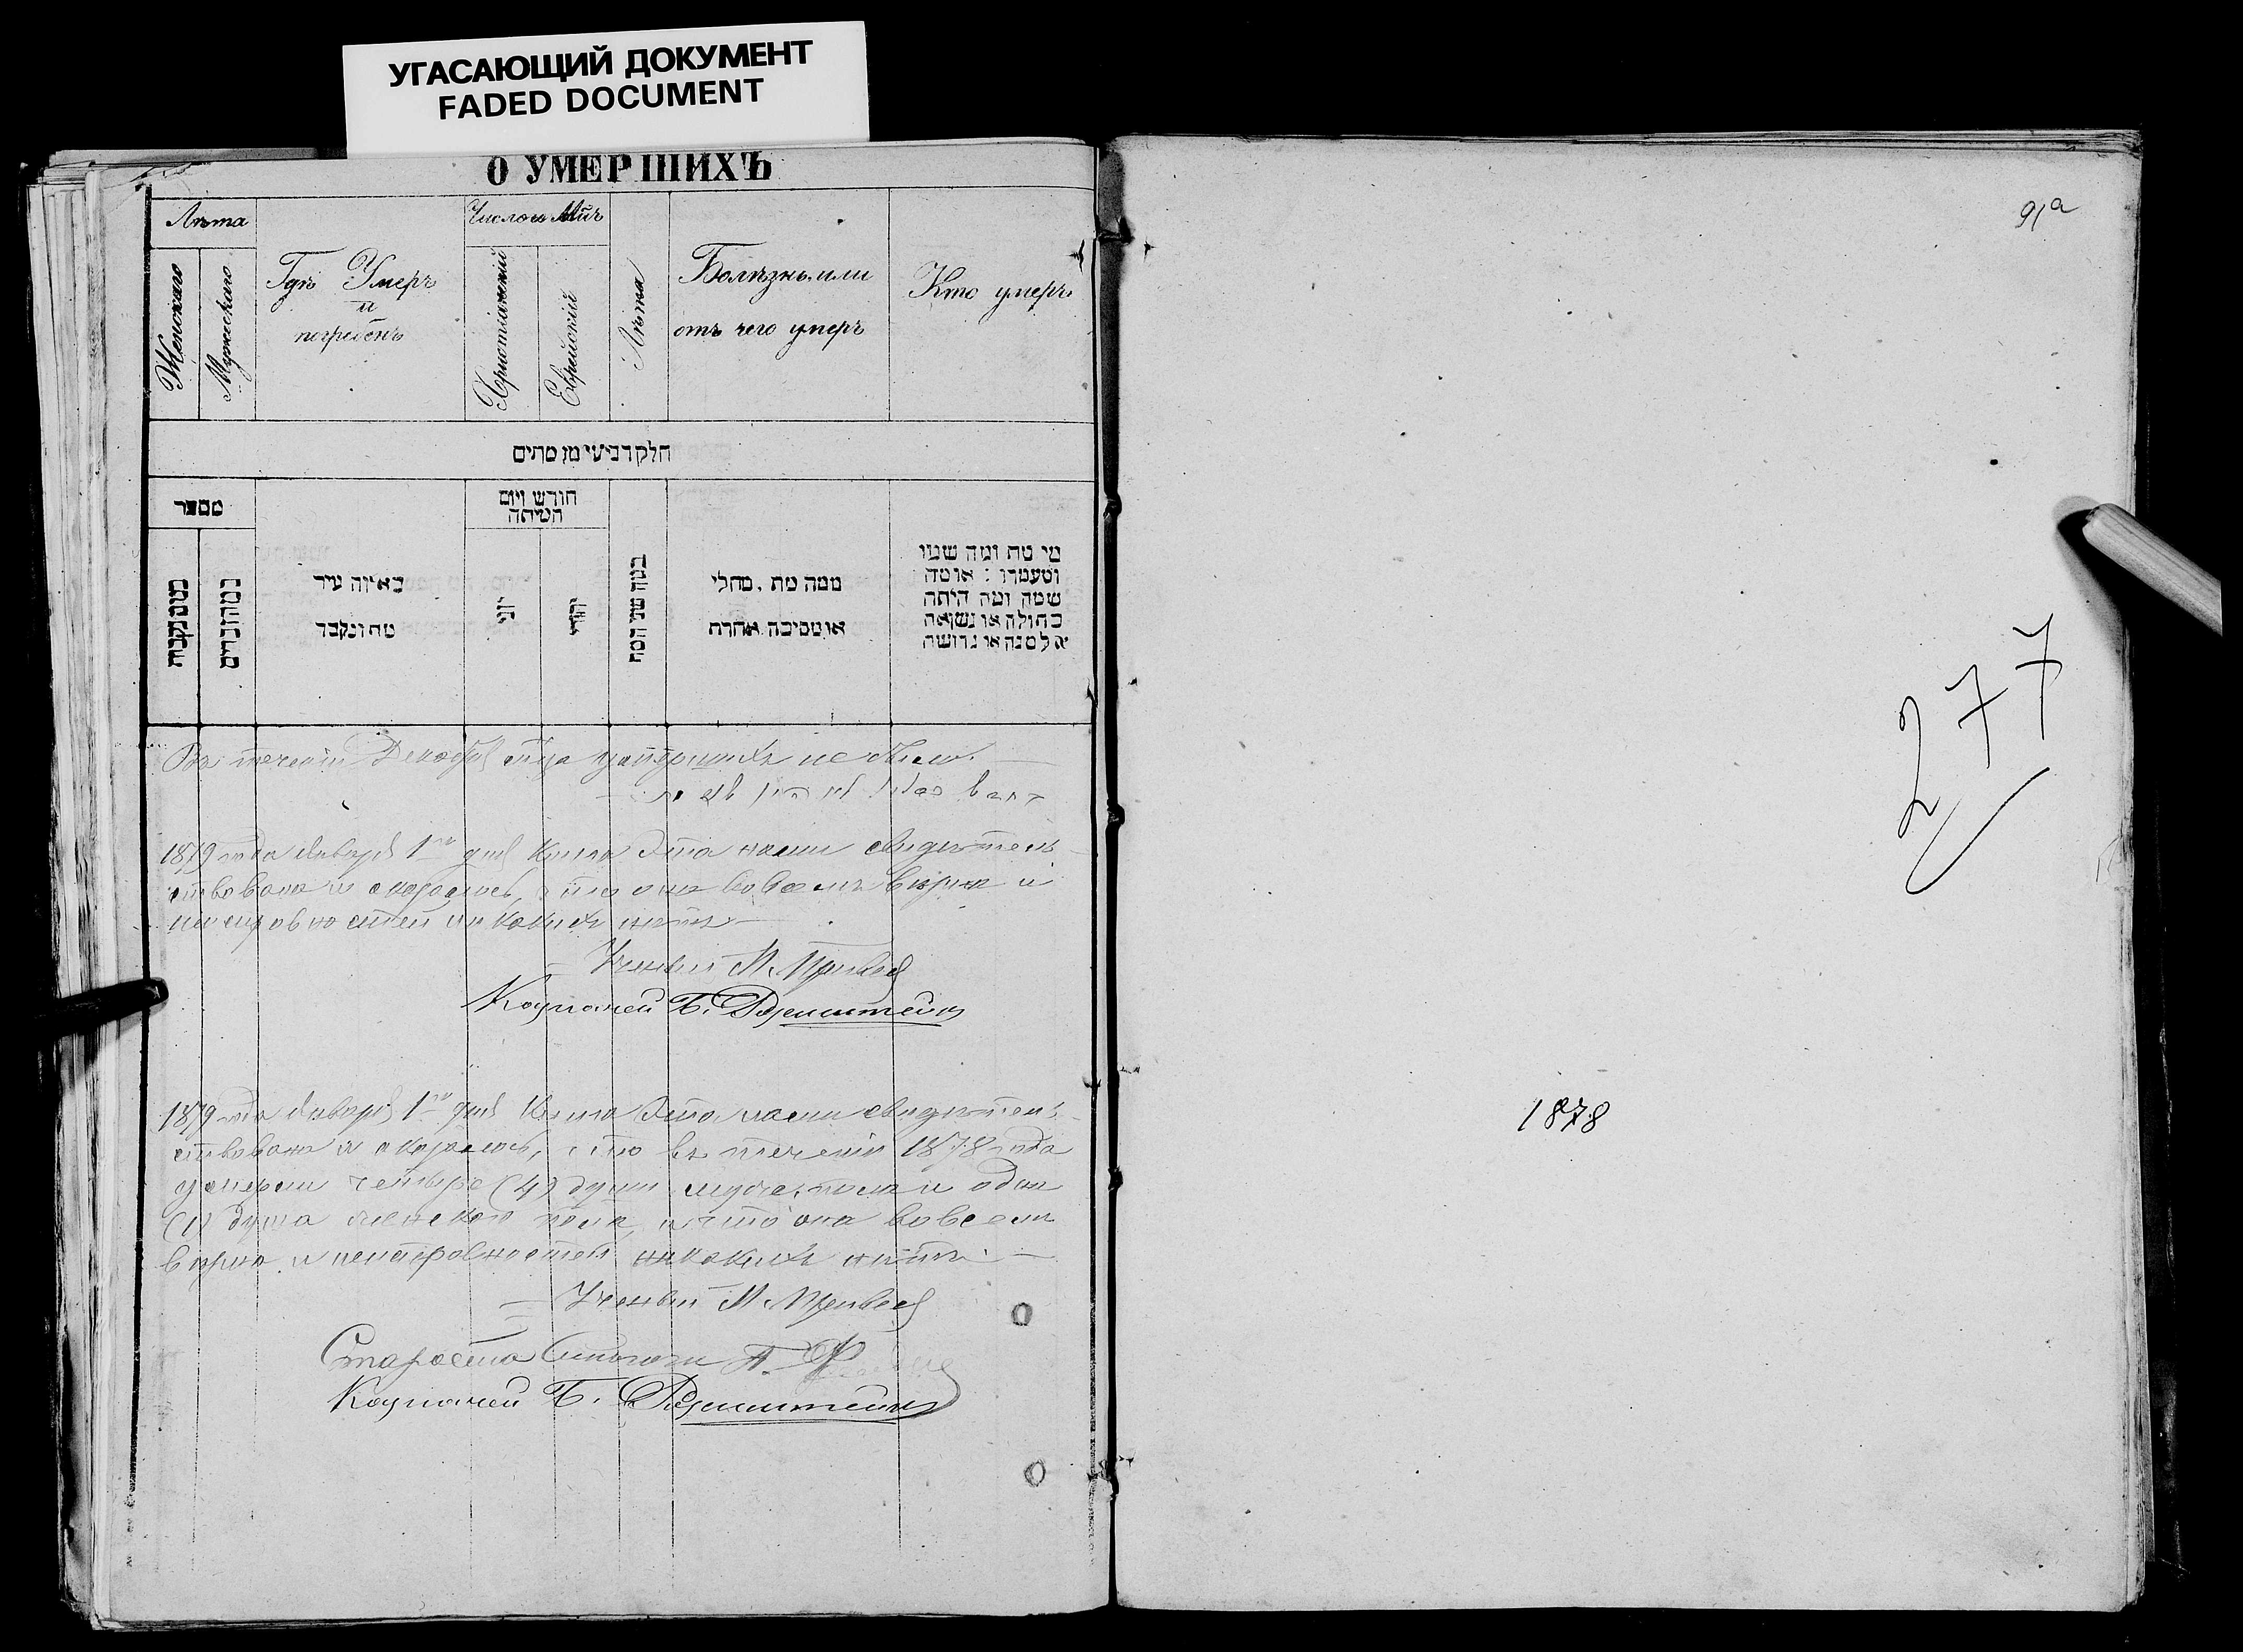 УГАСАЮЩИЙ ДОКУМЕНТ
FADED DOCUMENT
О УМЕРШИХЪ
Лѣта
Женскаго
Мужескаго
Гдѣ Умеръ
и
погребенъ
Число и Мцъ
Христіанскій
Еврейскій
Лѣта
Болѣзнь или
отъ чего умеръ
Кто умеръ
חלק רביעי מן מתים
מספר
חודש ויום
המיתה
באיזה עיר
מת ונקבר
ממה מת, מחלי
או מסיבה אחרת
מי מת ומה שמו
ומעמדו: או מה
שמה ומה היתה
בתולה או נשואה
אלמנה או גרושה
Въ теченіи Декабря мца умершихъ не было.
1879 года Января 1го дня Книга эта нами свидѣтель-
ствована и оказалось, что она во всемъ вѣрна и
неисправностей никакихъ нѣтъ
Ученый М.
Казначей Б. Розенштейнъ
1879 года Января 1го дня Книга эта нами свидѣтель-
ствована и оказалось, что въ теченіи 1878 года
умерли четыре (4) души мужс. пола и одна
(1) душа женскаго пола, и что она во всемъ
вѣрна и неисправностей никакихъ нѣтъ.
Ученый М.
Староста Синагоги
Казначей Б. Розенштейнъ
91а
277
1878